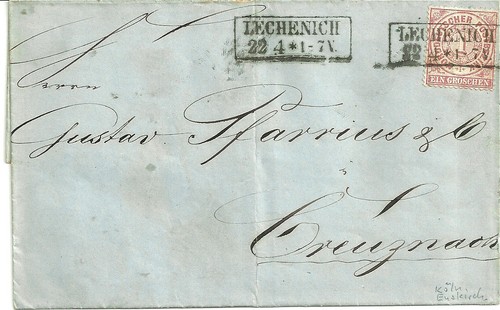 LECHENICH
22 4 * 1-7 V.
LECHENICH
22 4 * 1-7 V.
EIN GROSCHEN
Herrn
Gustav Pfarrius & C
Creuznach
Köln
Euskirch.